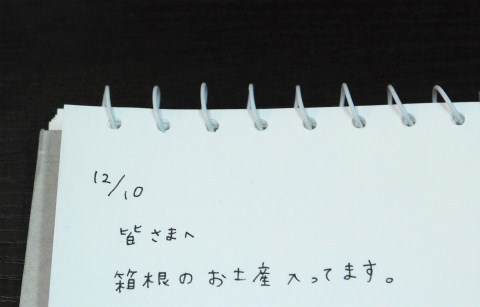 12/10
皆さまへ
箱根のお土産入ってます。